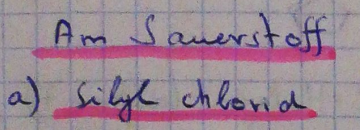 Am Sauerstoff
a) Silyl chlorid